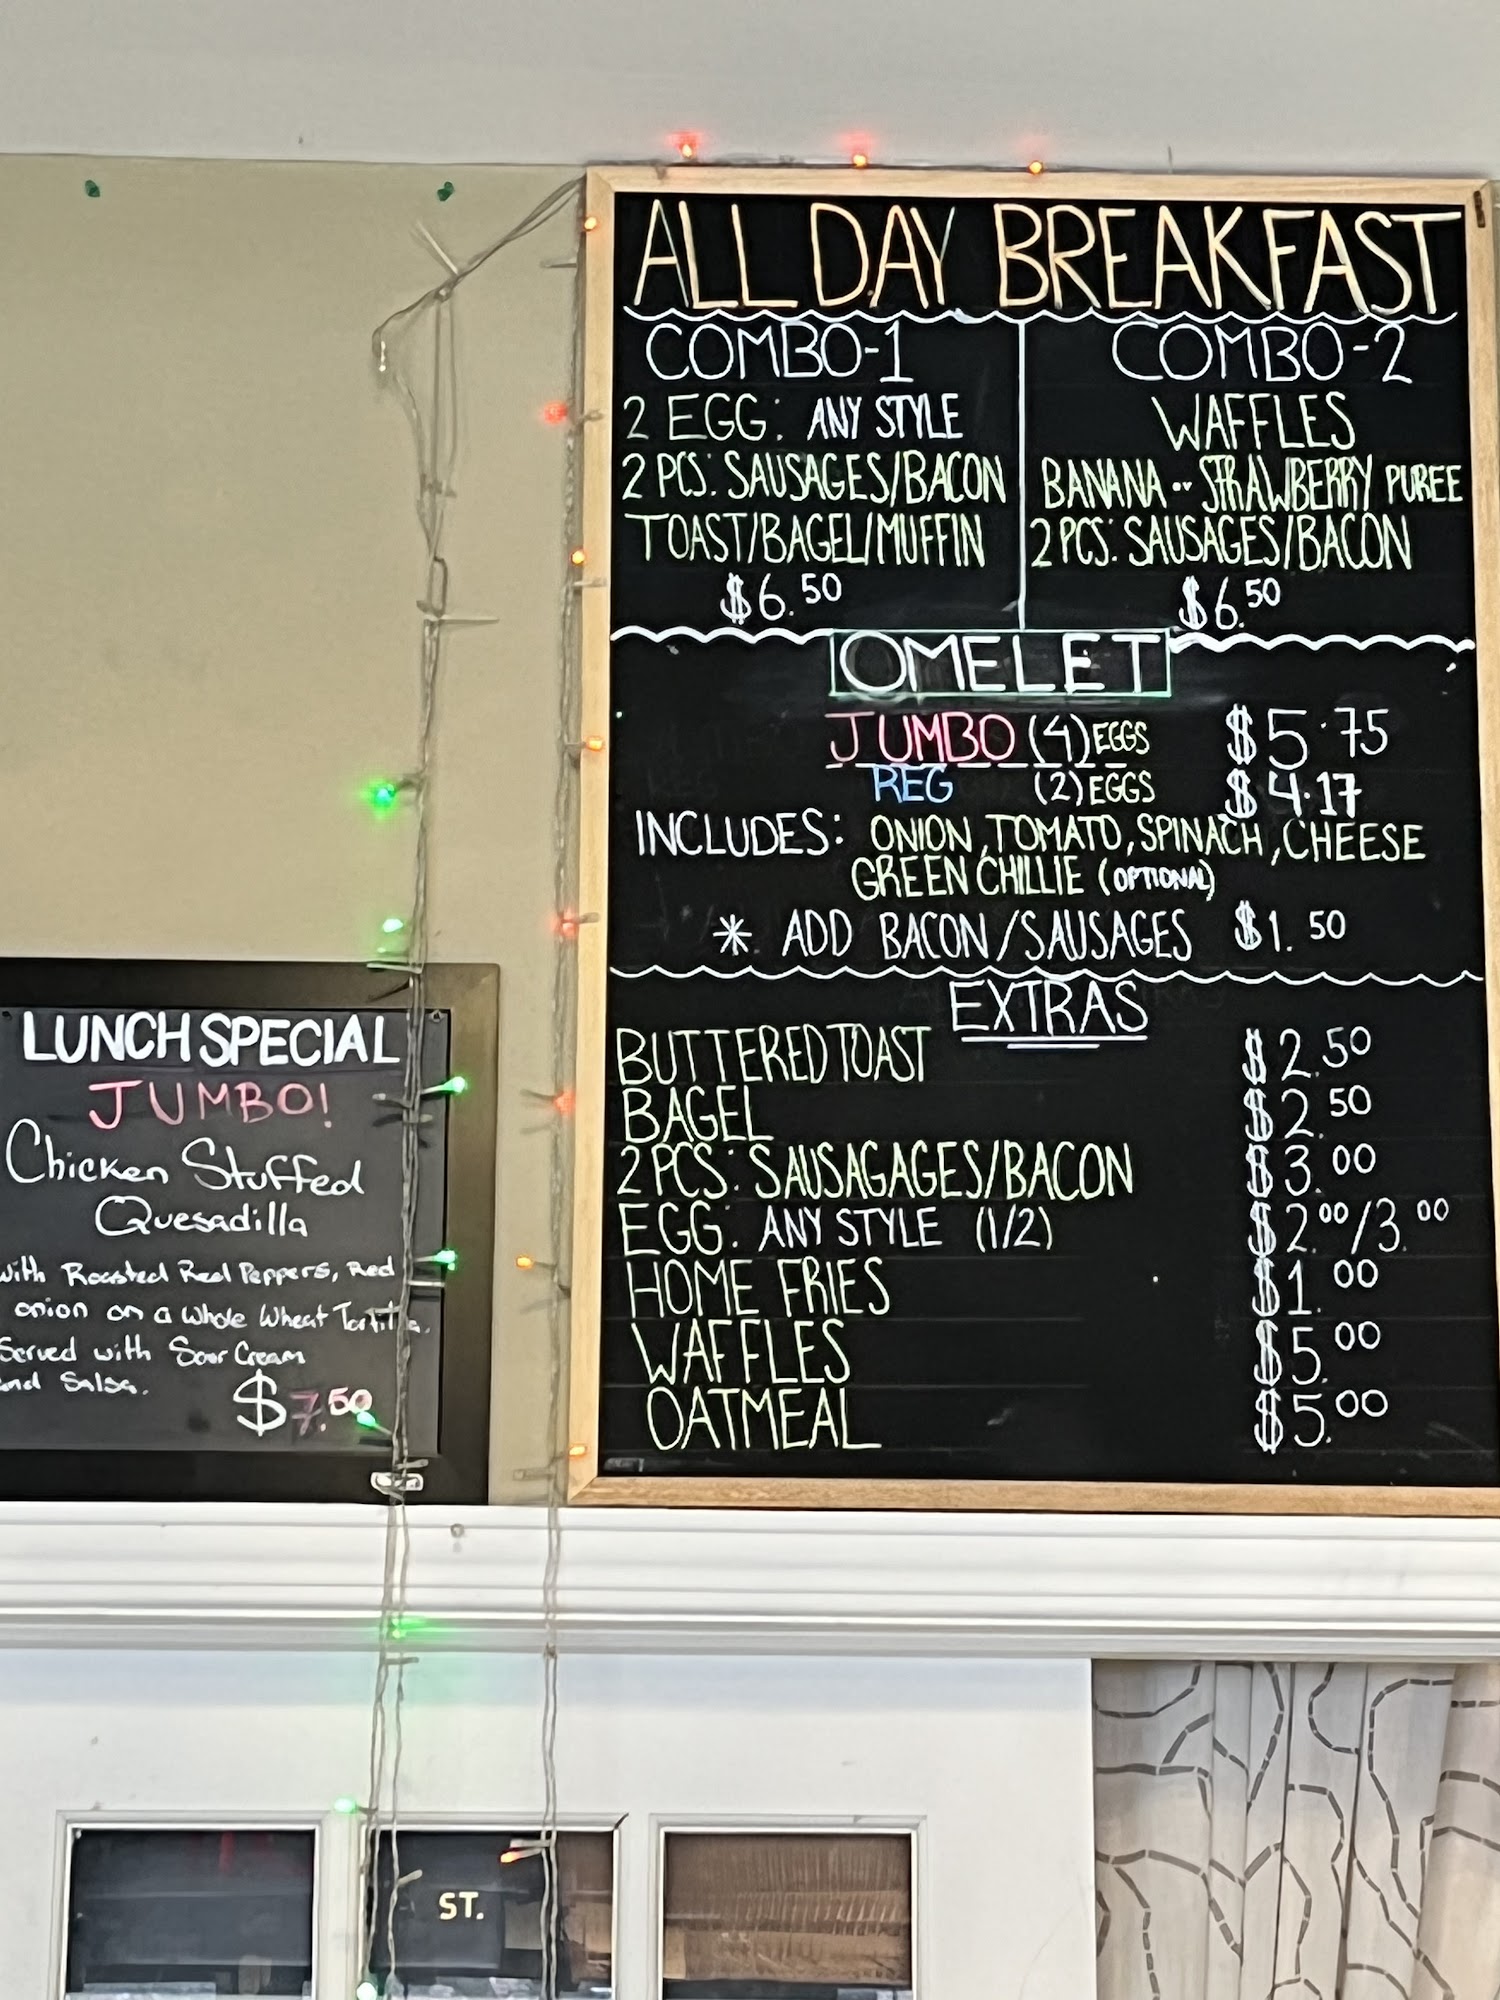 ALL DAY BREAKFAST
COMBO-1
2 EGG: ANY STYLE
2 PCS: SAUSAGES/BACON
TOAST/BAGEL/MUFFIN
$6.50
COMBO-2
WAFFLES
BANANA .. STRAWBERRY PUREE
2 PCS: SAUSAGES/BACON
$6.50
OMELET
JUMBO (4) EGGS $5.75
REG (2) EGGS $4.17
INCLUDES: ONION, TOMATO, SPINACH, CHEESE
GREEN CHILLIE (OPTIONAL)
* ADD BACON/SAUSAGES $1.50
EXTRAS
BUTTERED TOAST $2.50
BAGEL $2.50
2 PCS: SAUSAGAGES/BACON $3.00
EGG: ANY STYLE (1/2) $2.00/3.00
HOME FRIES $1.00
WAFFLES $5.00
OATMEAL $5.00
LUNCH SPECIAL
JUMBO!
Chicken Stuffed
Quesadilla
with Roasted Red Peppers, Red
onion on a Whole Wheat Tortilla.
Served with Sour Cream
and Salsa.
$7.50
ST.